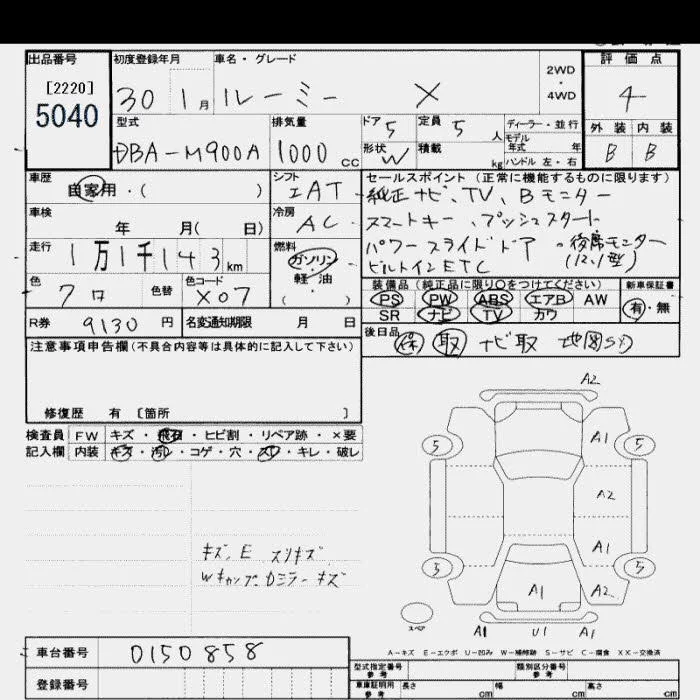 出品番号
[2220]
5040
初度登録年月
30 1月
車名・グレード
ルーミー X
2WD
・
4WD
評価点
4
型式
DBA-M900A
排気量
1000 cc
ドア 5
定員 5 人
形状 W
積載 kg
ディーラー・並行
モデル
年式 年
ハンドル 左・右
外装 内装
B B
車歴
自家用・( )
シフト
IAT
車検
年 月( 日)
冷房
AC
走行
1万1千143km
燃料
ガソリン
・
軽油
( )
色
クロ
色替
色コード
X07
R券 9130 円
名変通知期限 月 日
セールスポイント (正常に機能するものに限ります)
純正ナビ、TV、Bモニター
スマートキー、プッシュスタート
パワースライドドア ・後席モニター
ビルトインETC (12.1型)
装備品(純正品に限り○をつけてください)
PS PW ABS エアB AW
SR ナビ TV カワ
新車保証書
有・無
後日品
保 取 ナビ取 地図SD
注意事項申告欄(不具合内容等は具体的に記入して下さい)
修復歴 有 [箇所 ]
検査員
記入欄
FW キズ・飛石・ヒビ割・リペア跡・×要
内装 キズ・汚レ・コゲ・穴・スレ・キレ・破レ
キズ、E スリキズ
Wキャップ Dミラーキズ
A2
5 A1 5
A2
A1
5 A1 A2 5
スペア
A1 U1 A1
A-キズ E-エクボ U-凹み W-補修跡 S-サビ C-腐食 XX-交換済
車台番号 0150858
登録番号
型式指定番号
参考
類別区分番号
参考
車庫証明用
参考
長さ cm
幅 cm
高さ cm